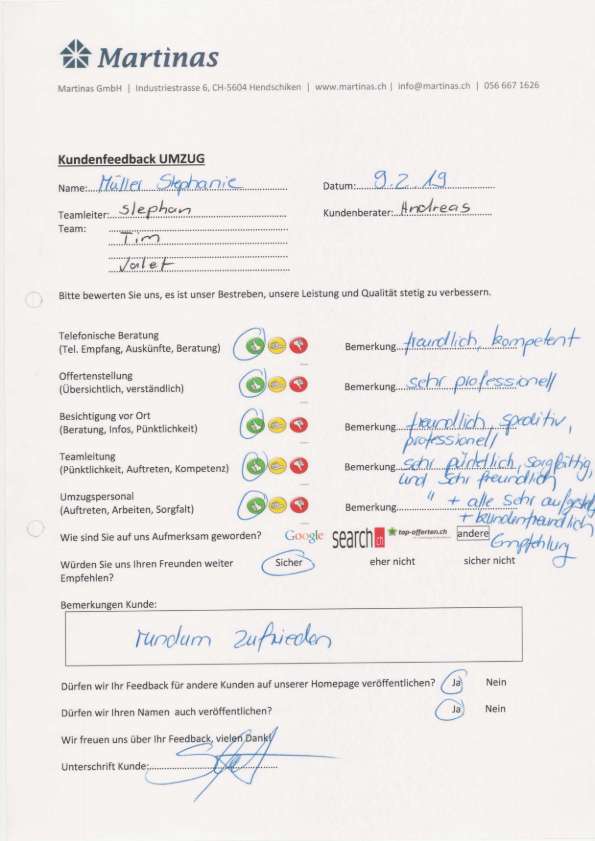 Martinas
Martinas GmbH | Industriestrasse 6, CH-5604 Hendschiken | www.martinas.ch | info@martinas.ch | 056 667 1626
Kundenfeedback UMZUG
Name: Müller Stephanie Datum: 9.2.19
Teamleiter: Stephan Kundenberater: Andreas
Team:
Tim
Bitte bewerten Sie uns, es ist unser Bestreben, unsere Leistung und Qualität stetig zu verbessern.
Telefonische Beratung
(Tel. Empfang, Auskünfte, Beratung) Bemerkung freundlich, kompetent
Offertenstellung
(Übersichtlich, verständlich) Bemerkung sehr professionell
Besichtigung vor Ort
(Beratung, Infos, Pünktlichkeit) Bemerkung freundlich, speditiv,
professionell
Teamleitung
(Pünktlichkeit, Auftreten, Kompetenz) Bemerkung sehr pünktlich, sorgfältig,
und sehr freundlich
Umzugspersonal
(Auftreten, Arbeiten, Sorgfalt) Bemerkung " + alle sehr
+ kundenfreundlich
Wie sind Sie auf uns Aufmerksam geworden? Google search.ch top-offerten.ch andere
Empfehlung
Würden Sie uns Ihren Freunden weiter Sicher eher nicht sicher nicht
Empfehlen?
Bemerkungen Kunde:
rundum zufrieden
Dürfen wir Ihr Feedback für andere Kunden auf unserer Homepage veröffentlichen? Ja Nein
Dürfen wir Ihren Namen auch veröffentlichen? Ja Nein
Wir freuen uns über Ihr Feedback, vielen Dank!
Unterschrift Kunde: